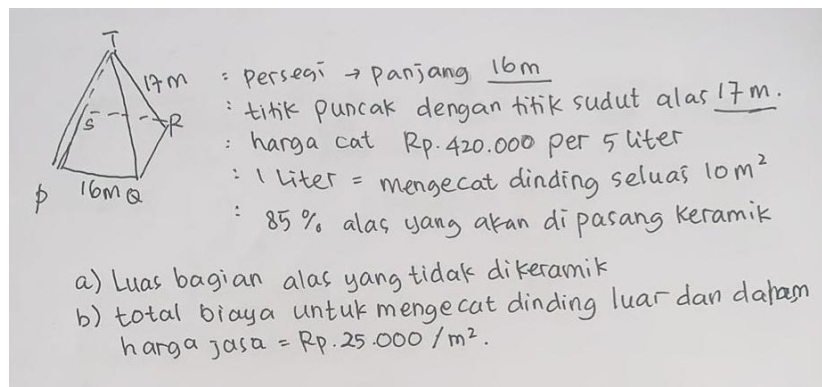 T
17m
S
R
P
16m Q
: persegi → panjang 16m
: titik puncak dengan titik sudut alas 17 m.
: harga cat Rp. 420.000 per 5 liter
: 1 Liter = mengecat dinding seluas 10 m²
: 85 % alas yang akan di pasang keramik
a) Luas bagian alas yang tidak dikeramik
b) total biaya untuk mengecat dinding luar dan dalam
harga jasa = Rp. 25.000 / m².